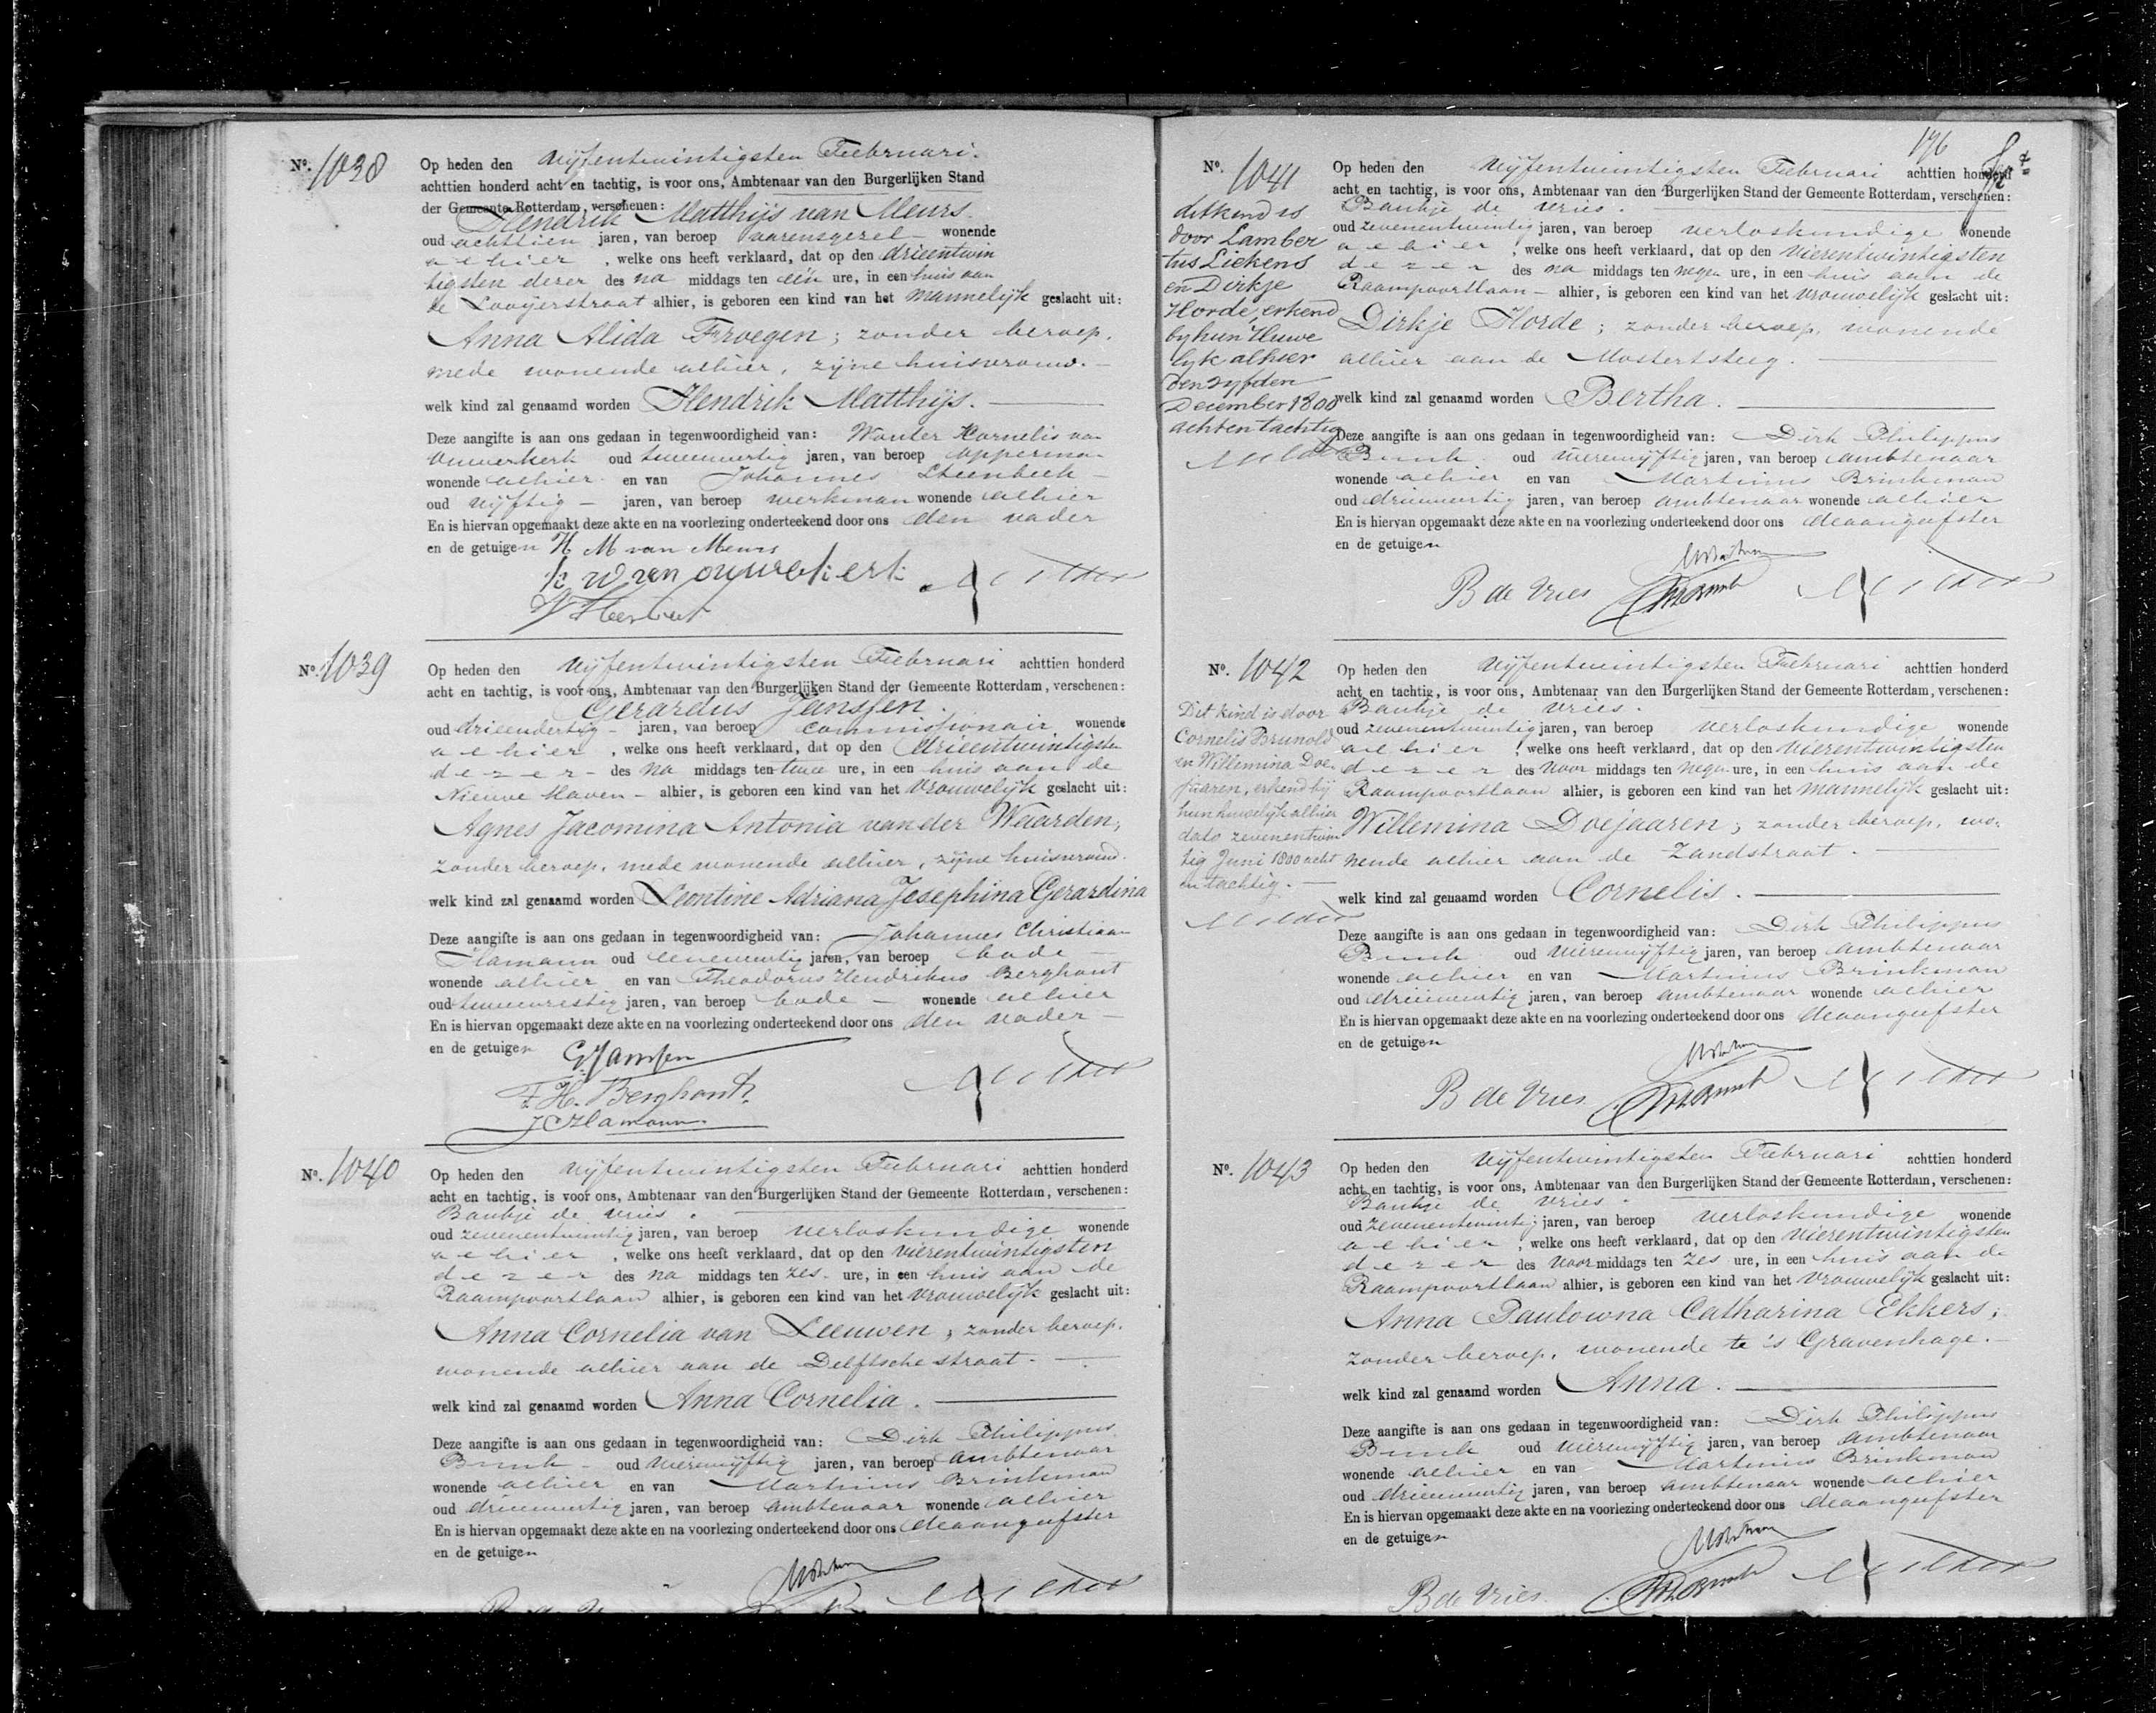 No. 1038
Op heden den vijfentwintigsten Februari.
achttien honderd acht en tachtig, is voor ons, Ambtenaar van den Burgerlijken Stand
der Gemeente Rotterdam, verschenen:
Hendrik Matthijs van Meurs.
oud achttien jaren, van beroep varensgezel wonende
alhier, welke ons heeft verklaard, dat op den drieentwin
tigsten dezer des na middags ten één ure, in een huis aan
de Looijerstraat alhier, is geboren een kind van het mannelijk geslacht uit:
Anna Alida Froegen; zonder beroep,
mede wonende alhier, zijne huisvrouw.
welk kind zal genaamd worden Hendrik Matthijs.
Deze aangifte is aan ons gedaan in tegenwoordigheid van: Wouter Kornelis van
Ouwerkerk oud tweeenveertig jaren, van beroep opperman
wonende alhier en van Johannes Steenbeek
oud vijftig jaren, van beroep werkman wonende alhier
En is hiervan opgemaakt deze akte en na voorlezing onderteekend door ons den vader
en de getuigen
H M van Meurs
k w van ouwerkerk
No. 1039
Op heden den vijfentwintigsten Februari achttien honderd
acht en tachtig, is voor ons, Ambtenaar van den Burgerlijken Stand der Gemeente Rotterdam, verschenen:
Gerardus Janssen.
oud drieendertig jaren, van beroep commissionair wonende
alhier, welke ons heeft verklaard, dat op den drieentwintigsten
dezer des na middags ten twee ure, in een huis aan de
Nieuwe Haven alhier, is geboren een kind van het vrouwelijk geslacht uit:
Agnes Jacomina Antonia van der Waarden;
zonder beroep, mede wonende alhier, zijne huisvrouw.
welk kind zal genaamd worden Leontine Adriana Josephina Gerardina
Deze aangifte is aan ons gedaan in tegenwoordigheid van: Johannes Christiaan
Hamann oud eenenveertig jaren, van beroep bode
wonende alhier en van Theodorus Hendrikus Berghout
oud tweeenzestig jaren, van beroep bode wonende alhier
En is hiervan opgemaakt deze akte en na voorlezing onderteekend door ons den vader
en de getuigen
G. Janssen
T. H. Berghout.
J C Hamann.
No. 1040
Op heden den vijfentwintigsten Februari achttien honderd
acht en tachtig, is voor ons, Ambtenaar van den Burgerlijken Stand der Gemeente Rotterdam, verschenen:
Baukje de Vries.
oud zevenentwintig jaren, van beroep verloskundige wonende
alhier, welke ons heeft verklaard, dat op den vierentwintigsten
dezer des na middags ten zes ure, in een huis aan de
Raampoortlaan alhier, is geboren een kind van het vrouwelijk geslacht uit:
Anna Cornelia van Leeuwen; zonder beroep,
wonende alhier aan de Delftsche straat.
welk kind zal genaamd worden Anna Cornelia.
Deze aangifte is aan ons gedaan in tegenwoordigheid van: Dirk Philippus
oud vierenvijftig jaren, van beroep ambtenaar
wonende alhier en van Martinus Brinkman
oud drieenveertig jaren, van beroep ambtenaar wonende alhier
En is hiervan opgemaakt deze akte en na voorlezing onderteekend door ons de aangeefster
en de getuigen
176
No. 1041
dit kind is
door Lamber
tus Liekens
en Dirkje
Horde, erkend
by hun Huwe
lyk alhier
den vyfden
December 1800
achtentachtig
Op heden den vijfentwintigsten Februari achttien honderd
acht en tachtig, is voor ons, Ambtenaar van den Burgerlijken Stand der Gemeente Rotterdam, verschenen:
Baukje de Vries.
oud zevenentwintig jaren, van beroep verloskundige wonende
alhier, welke ons heeft verklaard, dat op den vierentwintigsten
dezer des na middags ten negen ure, in een huis aan de
Raampoortlaan alhier, is geboren een kind van het vrouwelijk geslacht uit:
Dirkje Horde; zonder beroep, wonende
alhier aan de Mostertsteeg.
welk kind zal genaamd worden Bertha.
Deze aangifte is aan ons gedaan in tegenwoordigheid van: Dirk Philippus
oud vierenvijftig jaren, van beroep ambtenaar
wonende alhier en van Martinus Brinkman
oud drieenveertig jaren, van beroep ambtenaar wonende alhier
En is hiervan opgemaakt deze akte en na voorlezing onderteekend door ons de aangeefster
en de getuigen
B de Vries
No. 1042
Dit kind is door
Cornelis Brunold
en Willemina Doe
jaaren, erkend bij
hun huwelijk alhier
dato zevenentwin
tig Juni 1800 acht
en tachtig.
Op heden den vijfentwintigsten Februari achttien honderd
acht en tachtig, is voor ons, Ambtenaar van den Burgerlijken Stand der Gemeente Rotterdam, verschenen:
Baukje de Vries.
oud zevenentwintig jaren, van beroep verloskundige wonende
alhier, welke ons heeft verklaard, dat op den vierentwintigsten
dezer des voor middags ten negen ure, in een huis aan de
Raampoortlaan alhier, is geboren een kind van het mannelijk geslacht uit:
Willemina Doejaaren; zonder beroep, wo-
nende alhier aan de Zandstraat.
welk kind zal genaamd worden Cornelis.
Deze aangifte is aan ons gedaan in tegenwoordigheid van: Dirk Philippus
oud vierenvijftig jaren, van beroep ambtenaar
wonende alhier en van Martinus Brinkman
oud drieenveertig jaren, van beroep ambtenaar wonende alhier
En is hiervan opgemaakt deze akte en na voorlezing onderteekend door ons de aangeefster
en de getuigen
B de Vries.
No. 1043
Op heden den vijfentwintigsten Februari achttien honderd
acht en tachtig, is voor ons, Ambtenaar van den Burgerlijken Stand der Gemeente Rotterdam, verschenen:
Baukje de Vries
oud zevenentwintig jaren, van beroep verloskundige wonende
alhier, welke ons heeft verklaard, dat op den vierentwintigsten
dezer des voor middags ten zes ure, in een huis aan de
Raampoortlaan alhier, is geboren een kind van het vrouwelijk geslacht uit:
Anna Paulowna Catharina Ekkers;
zonder beroep, wonende te 's Gravenhage.
welk kind zal genaamd worden Anna.
Deze aangifte is aan ons gedaan in tegenwoordigheid van: Dirk Philippus
oud vierenvijftig jaren, van beroep ambtenaar
wonende alhier en van Martinus Brinkman
oud drieenveertig jaren, van beroep ambtenaar wonende alhier
En is hiervan opgemaakt deze akte en na voorlezing onderteekend door ons de aangeefster
en de getuigen
B de Vries.